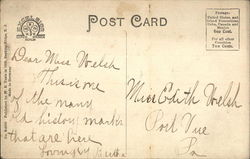 POST CARD
Postage:
United States, and
Island Possessions
Cuba, Canada and
Mexico
One Cent.
For all other
Countries
Two Cents.
Dear Miss Welsh
This is one
of the many
old history marks
that are here
Lovingly
Miss Edith Welsh
Port Vue
Pa